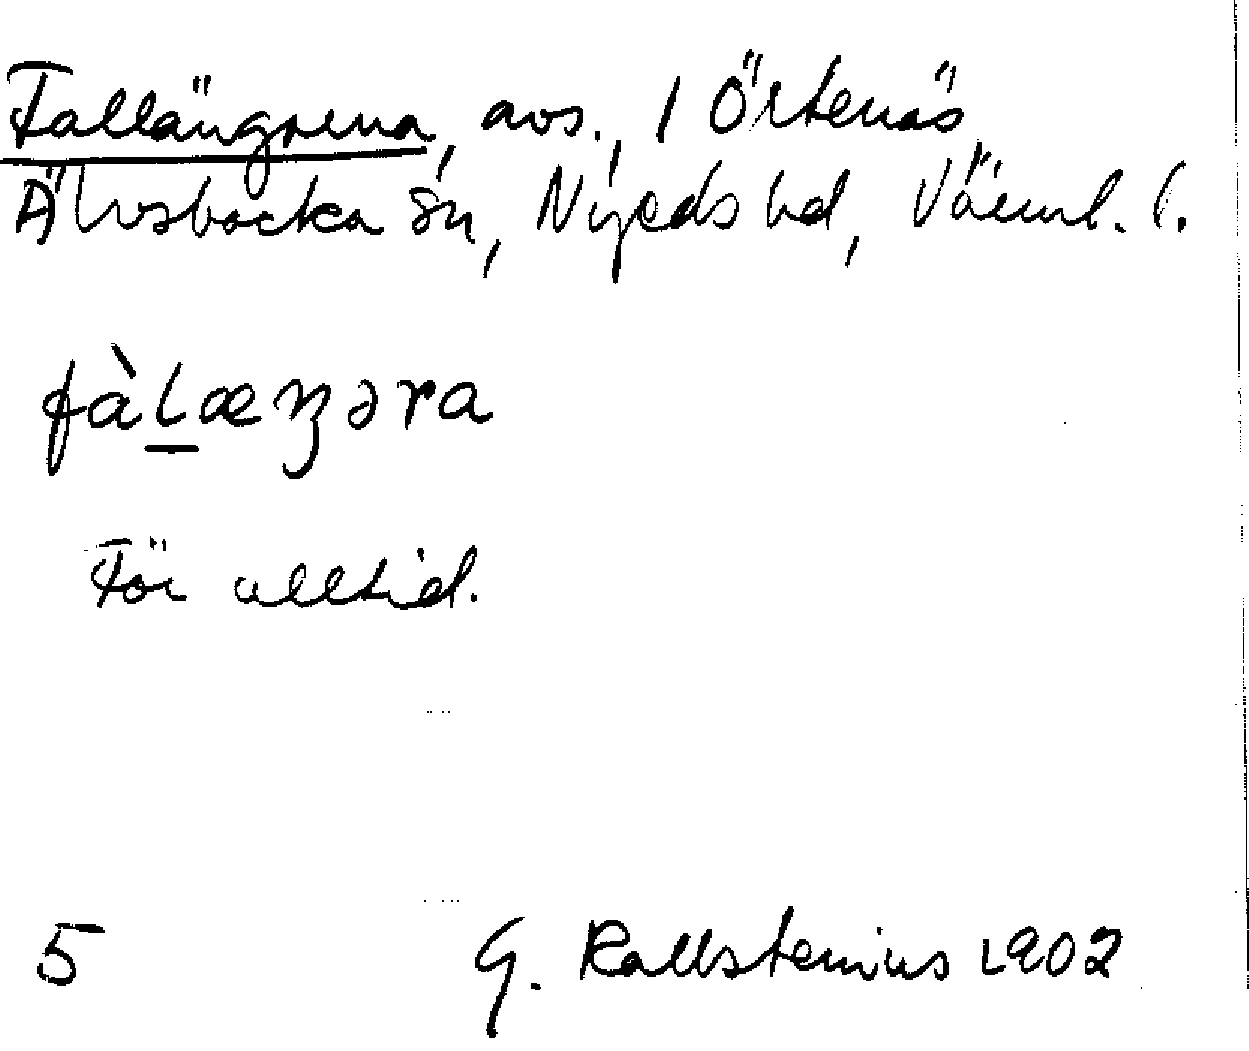 Fallängrena, avs., 1 Örtenäs,
Älvsbacka sn, Nyeds hd, Värml. l.
fàlæŋəra
För alltid.
5 G. Kallstenius 1902